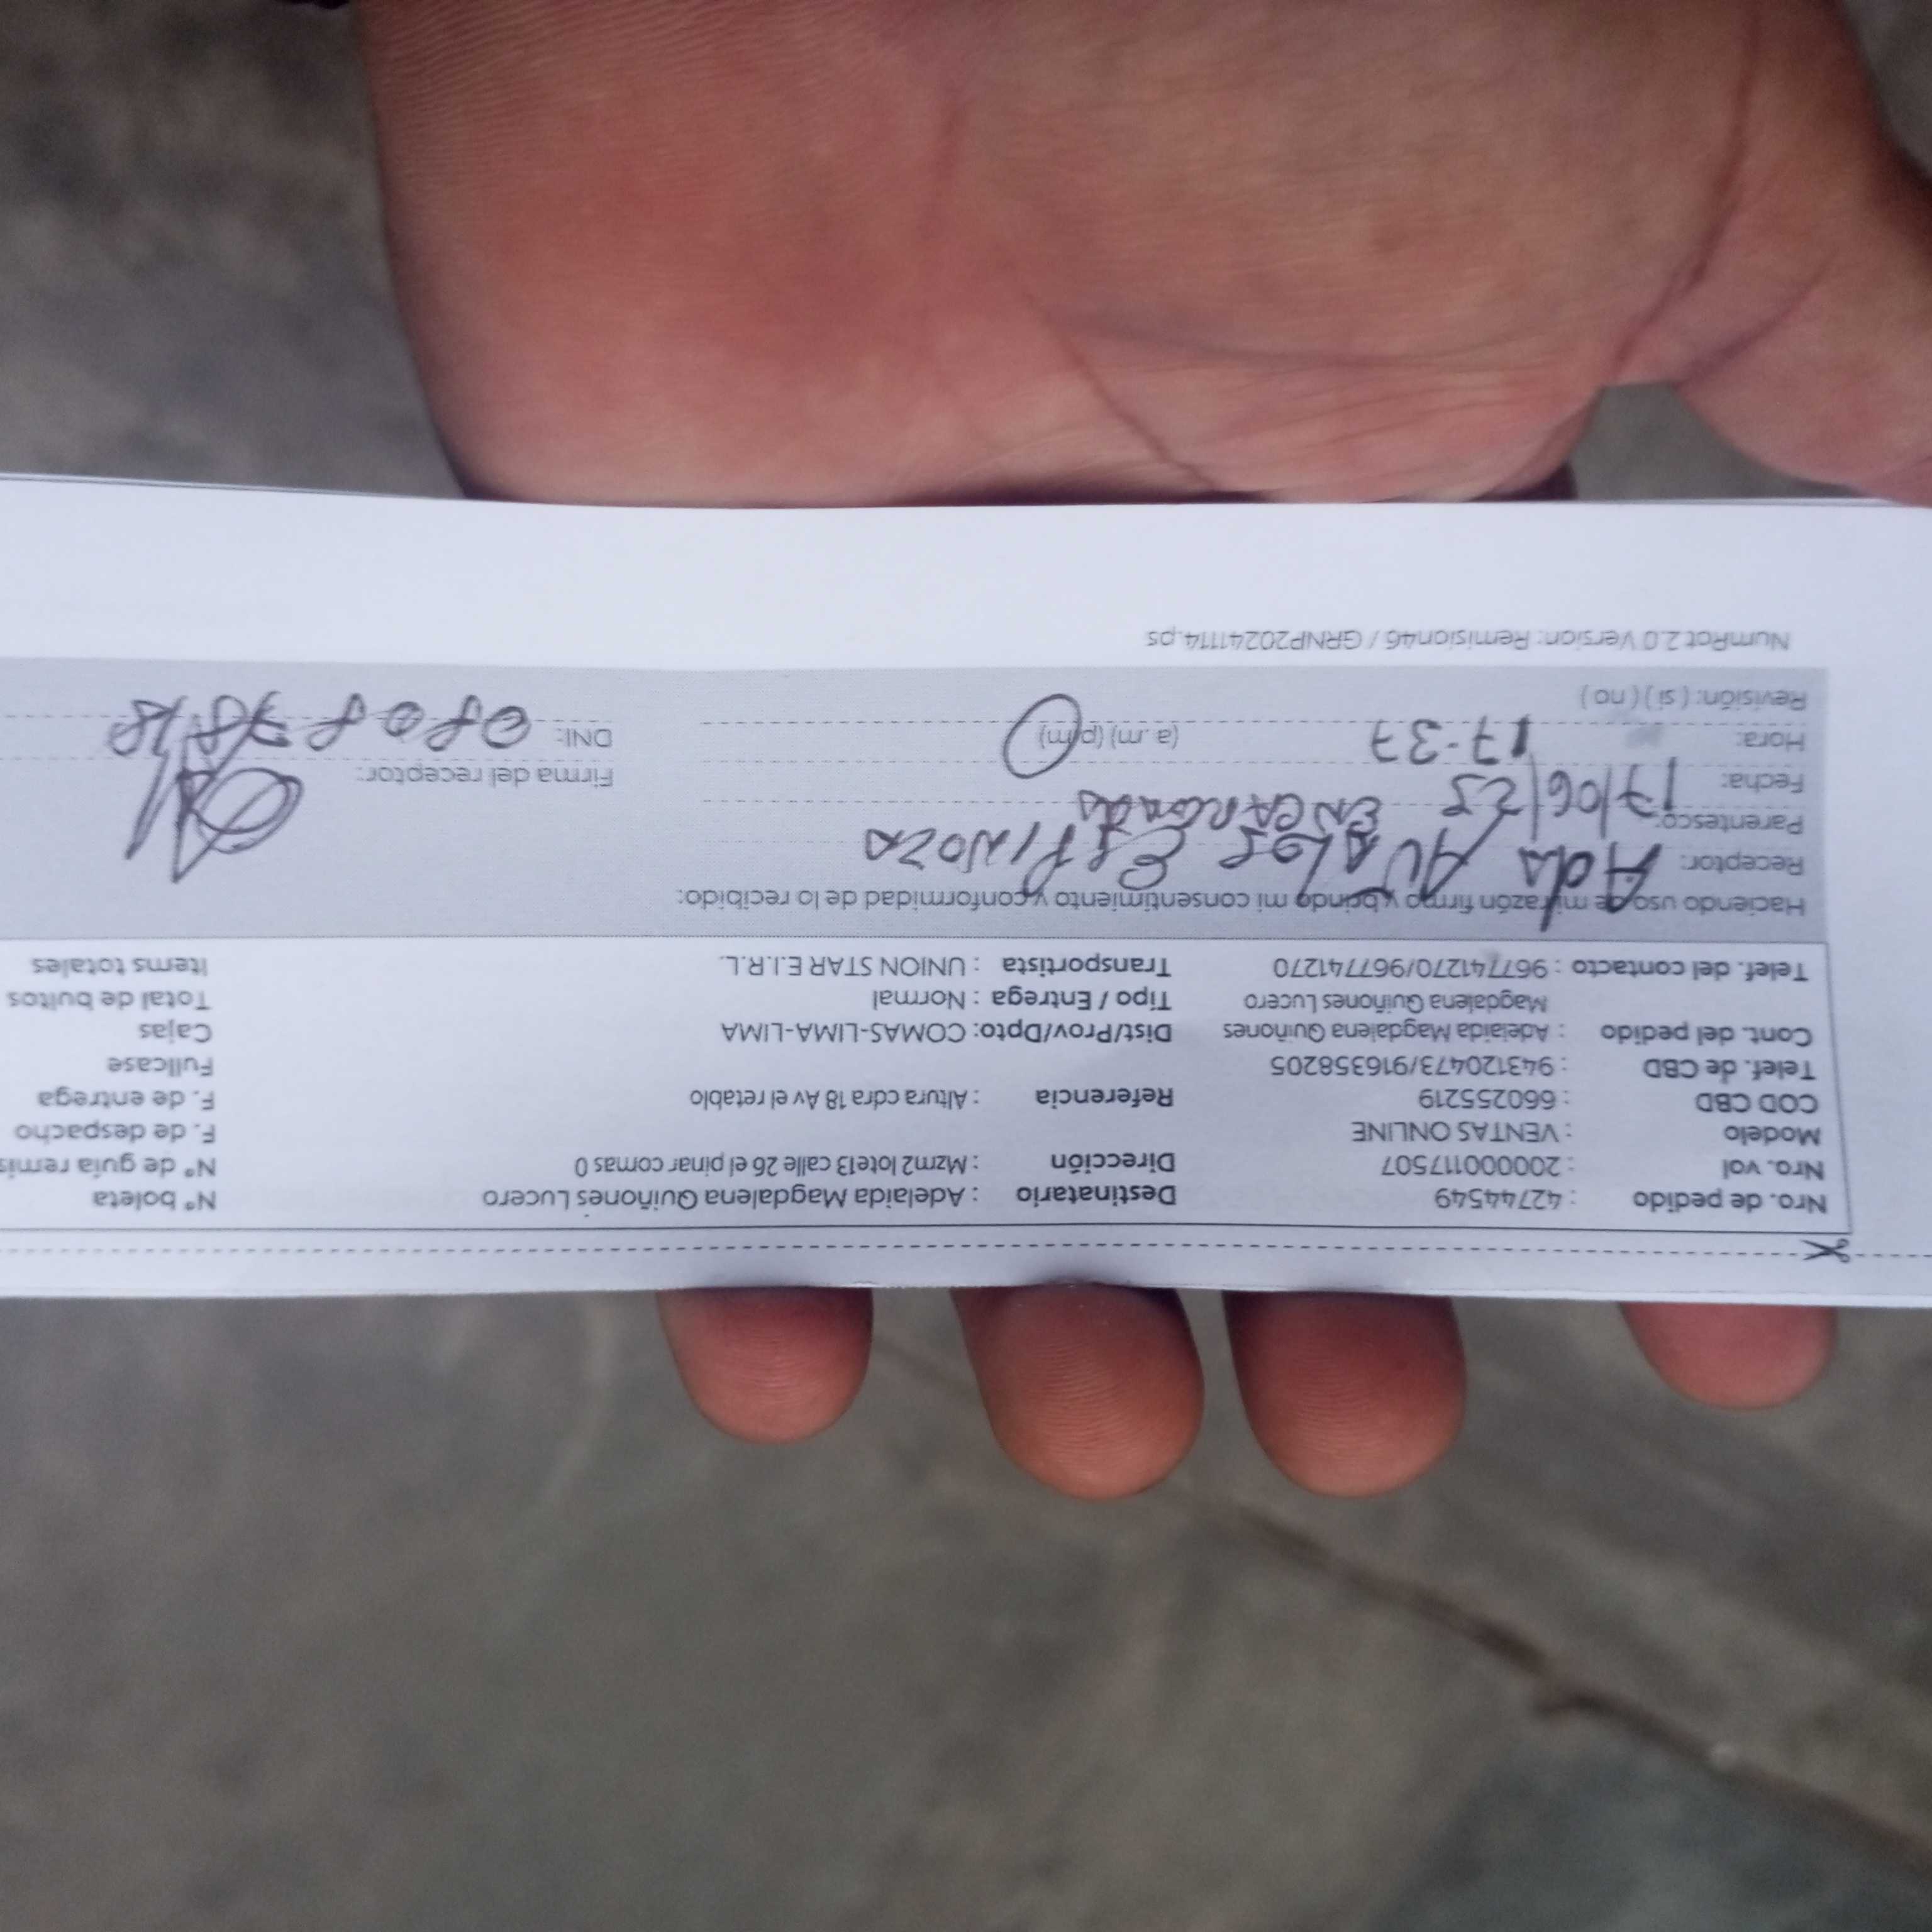 Nro. de pedido : 42744549 Destinatario : Adelaida Magdalena Quiñones Lucero N° boleta
Nro. vol : 200000117507 Dirección : Mzrm2 lote13 calle 26 el pinar comas 0 N° de guía remis
Modelo : VENTAS ONLINE F. de despacho
COD CBD : 660255219 Referencia : Altura cdra 18 Av el retablo F. de entrega
Telef. de CBD : 943120473/916358205 Fullcase
Cont. del pedido : Adelaida Magdalena Quiñones Dist/Prov/Dpto: COMAS-LIMA-LIMA Cajas
Magdalena Quiñones Lucero Tipo / Entrega : Normal Total de bultos
Telef. del contacto : 967741270/967741270 Transportista : UNION STAR E.I.R.L. Items totales
Haciendo uso de mi razón firmo y brindo mi consentimiento y conformidad de lo recibido:
Receptor: Ada Avalos Espinoza
Parentesco: Encargada
Fecha: 17/06/25 Firma del receptor:
Hora: 17-37 (a. m) (p.m) DNI:
Revisión: ( si ) ( no )
NumRot 2.0 Version: Remision46 / GRNP20241114.ps